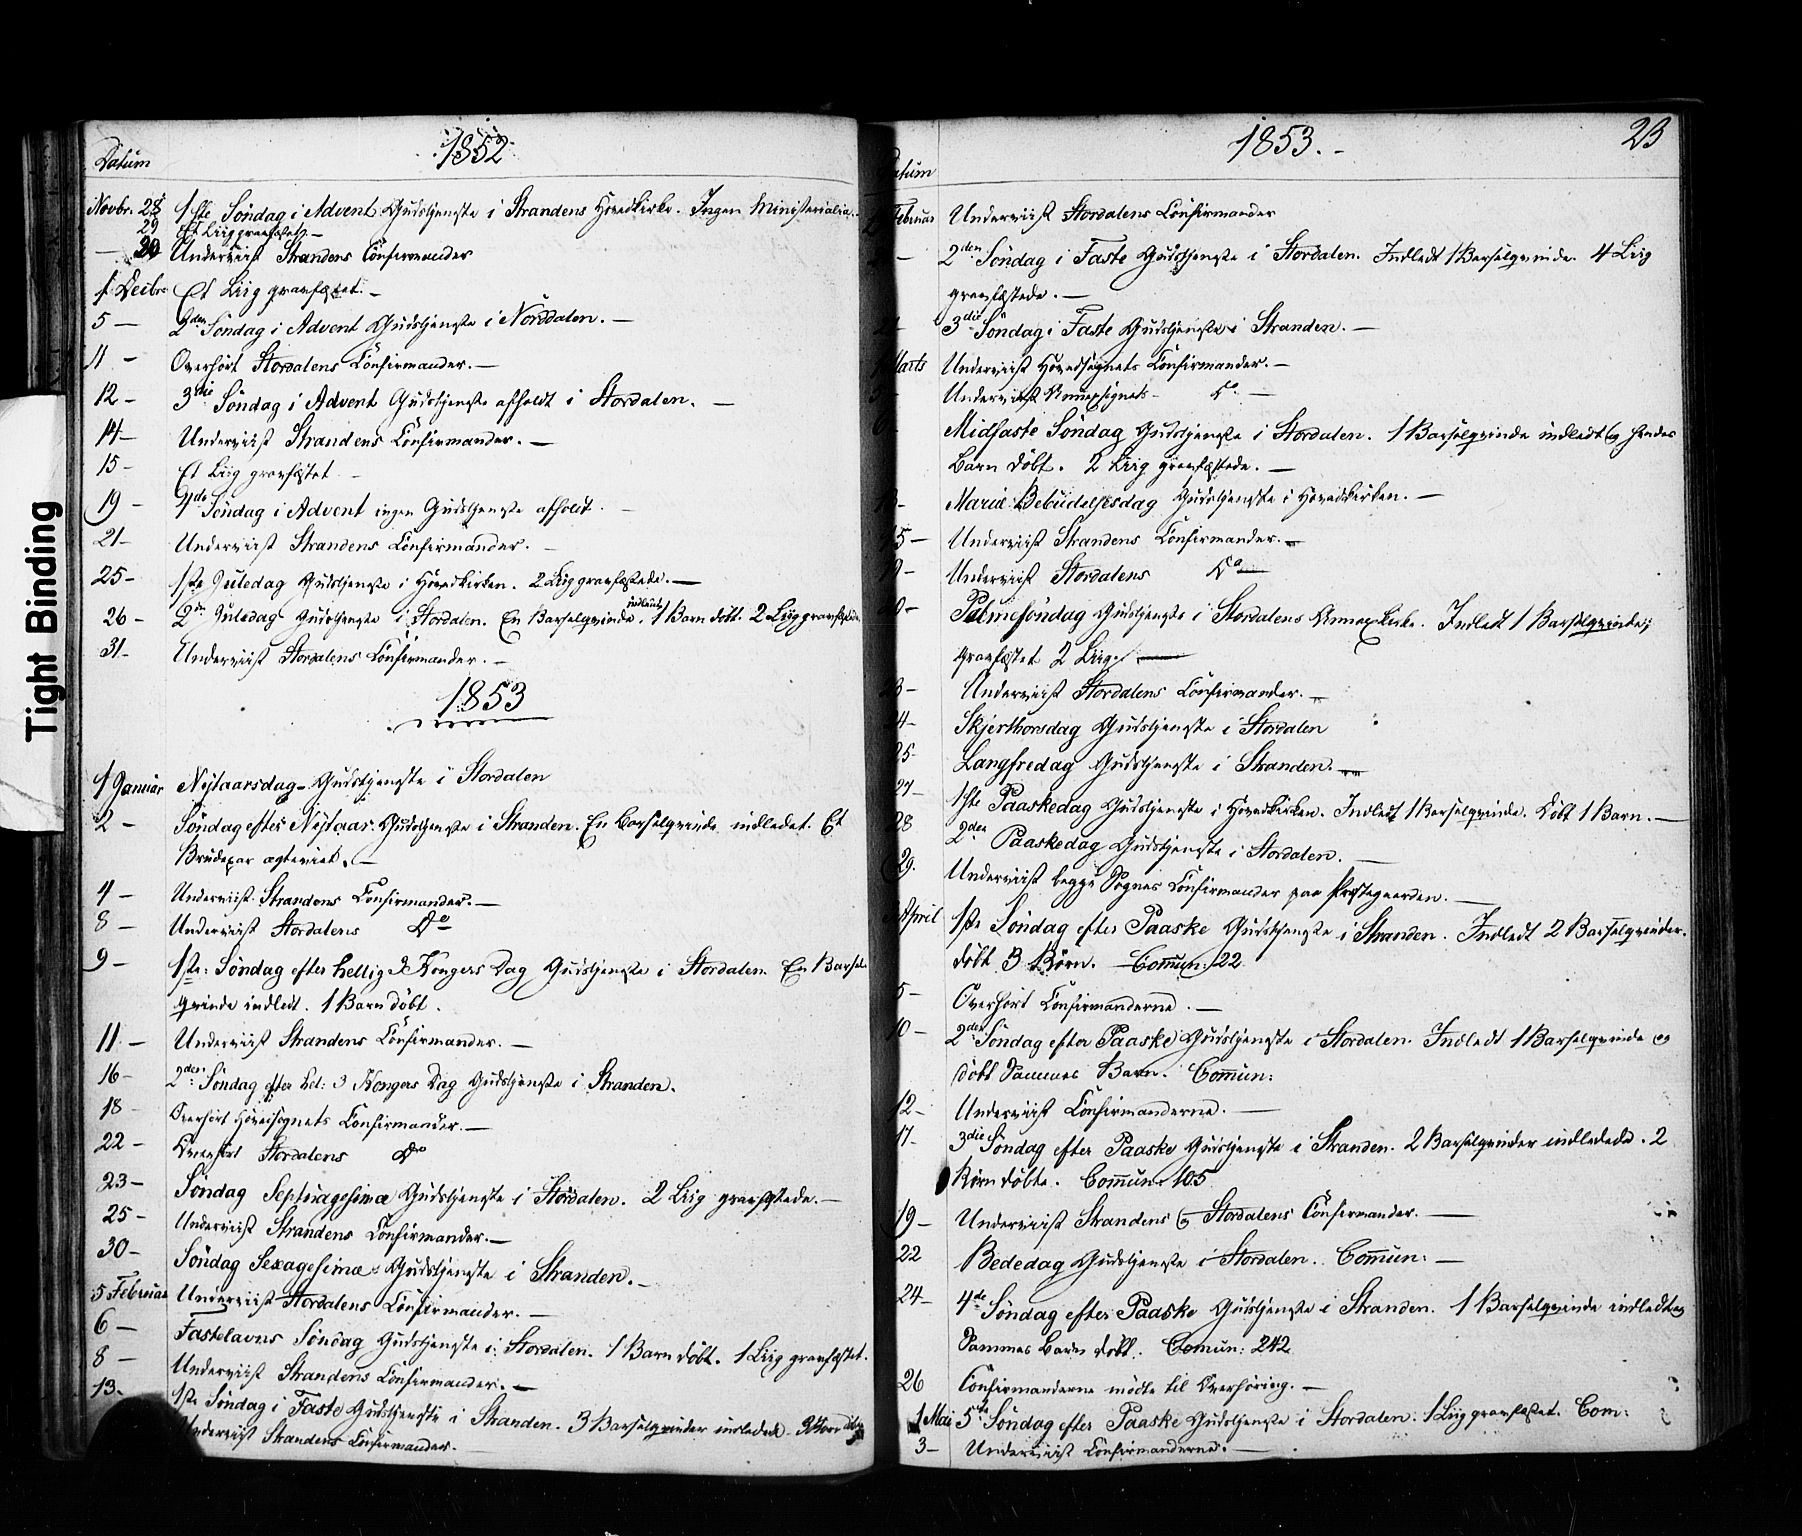 Datum
1852
Novbr. 28 1ste Søndag i Advent Gudstjeneste i Strandens Hovedkirke. Ingen Ministerialia.
29 Et Liig gravfæstet. —
— 30 Underviist Strandens Confirmander
1 Decbr. Et Liig gravfæstet. —
5 — 2den Søndag i Advent Gudstjeneste i Norddalen. —
11 — Overhørt Stordalens Confirmander. —
12 — 3die Søndag i Advent Gudstjeneste afholdt i Stordalen. —
14 — Underviist Strandens Confirmander. —
15 — Et Liig gravfæstet —
19 — 4de Søndag i Advent ingen Gudstjeneste afholdt. —
21 — Underviist Strandens Confirmander. —
25 — 1ste Juledag Gudstjeneste i Hovedkirken. 2 Liig gravfæstede. —
26 — 2den Juledag Gudstjeneste i Stordalen. En Barselqvinde indledt. 1 Barn døbt. 2 Liig gravfæstede.
31 — Underviist Stordalens Confirmander. —
1853
1 Januar Nytaarsdag - Gudstjeneste i Stordalen
2 — Søndag efter Nytaar. Gudstjeneste i Stranden. En Barselqvinde indledet. Et
Brudepar ægteviet. —
4 — Underviist Strandens Confirmander. —
8 — Underviist Stordalens Do
9 — 1ste Søndag efter hellig 3 Kongers Dag Gudstjeneste i Stordalen. En Barsel-
qvinde indledt. 1 Barn døbt.
11 — Underviist Strandens Confirmander. —
16 — 2den Søndag efter hel: 3 Kongers Dag Gudstjeneste i Stranden.
18 — Overhørt Hovedsognets Confirmander. —
22 — Overhørt Stordalens Do
23 — Søndag Septuagesimæ Gudstjeneste i Stordalen. 2 Liig gravfæstede. —
25 — Underviist Strandens Confirmander. —
30 — Søndag Sexagesimæ Gudstjeneste i Stranden. —
5 Februar Underviist Stordalens Confirmander. —
6 — Fastelavns Søndag Gudstjeneste i Stordalen. 1 Barn døbt. 1 Liig gravfæstet.
8 — Underviist Strandens Confirmander. —
13. 1ste Søndag i Faste Gudstjeneste i Stranden. 3 Barselqvinder indledede.
Underviist Strandens Confirmander. —
1853. —
23
Datum
Februar Underviist Stordalens Confirmander
— 2den Søndag i Faste Gudstjeneste i Stordalen. Indledt 1 Barselqvinde. 4 Liig
gravfæstede. —
3die Søndag i Faste Gudstjeneste i Stranden. —
Marts Underviist Hovedsognets Confirmander. —
Underviist Annexsognets Do —
6 — Midfaste Søndag Gudstjeneste i Stordalen. 1 Barselqvinde indledt og hendes
Barn døbt. 2 Liig gravfæstede. —
Mariæ Bebudelsesdag Gudstjeneste i Hovedkirken. —
15 — Underviist Strandens Confirmander. —
Underviist Stordalens Do —
20 — Palmesøndag Gudstjeneste i Stordalens Annexkirke. Indledt 1 Barselqvinde;
gravfæstet 2 Liig. —
23 — Underviist Stordalens Confirmander. —
24 — Skjerthorsdag Gudstjeneste i Stordalen
25 — Langfredag Gudstjeneste i Stranden. —
27 — 1ste Paaskedag Gudstjeneste i Hovedkirken. Indledt 1 Barselqvinde. Døbt 1 Barn. —
28 2den Paaskedag Gudstjeneste i Stordalen. —
29. Underviist begge Sognes Confirmander paa Præstegaarden. —
April 1ste Søndag efter Paaske Gudstjeneste i Stranden. Indledt 2 Barselqvinder.
døbt 3 Børn. Commun: 22
5 — Overhørt Confirmanderne. —
10 — 2den Søndag efter Paaske Gudstjeneste i Stordalen. Indledt 1 Barselqvinde og
døbt sammes Barn. Commun:
12 — Underviist Confirmanderne. —
17 — 3die Søndag efter Paaske Gudstjeneste i Stranden. 2 Barselqvinder indledede. 2
Børn døbte. Commun: 105.
19 — Underviist Strandens og Stordalens Confirmander. —
22 Bededag Gudstjeneste i Stordalen. Commun: —
24 — 4de Søndag efter Paaske Gudstjeneste i Stranden. 1 Barselqvinde indledt og
sammes Barn døbt. Comun: 242
26 Confirmanderne mødte til Overhøring. —
1 Mai 5te Søndag efter Paaske Gudstjeneste i Stordalen. 1 Liig gravfæstet. Com:
3 — Underviist Confirmanderne. —
Tight Binding